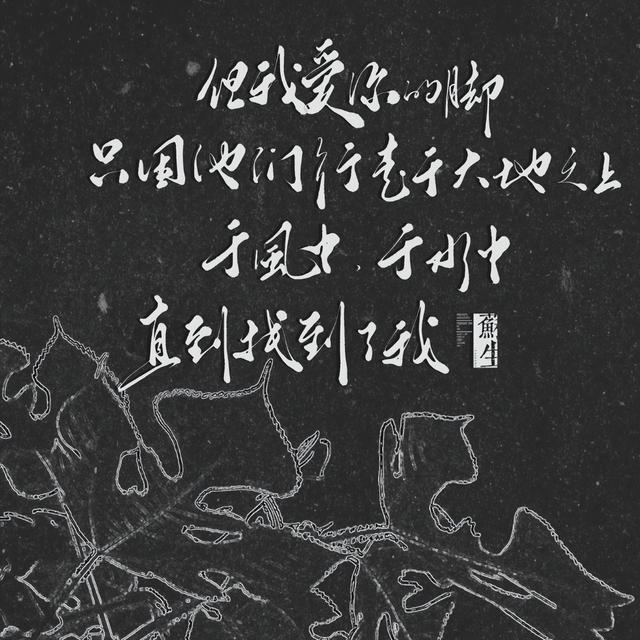 但我爱你的脚
只因他们行走于大地之上
于風中,于水中
直到找到了我
蕉生